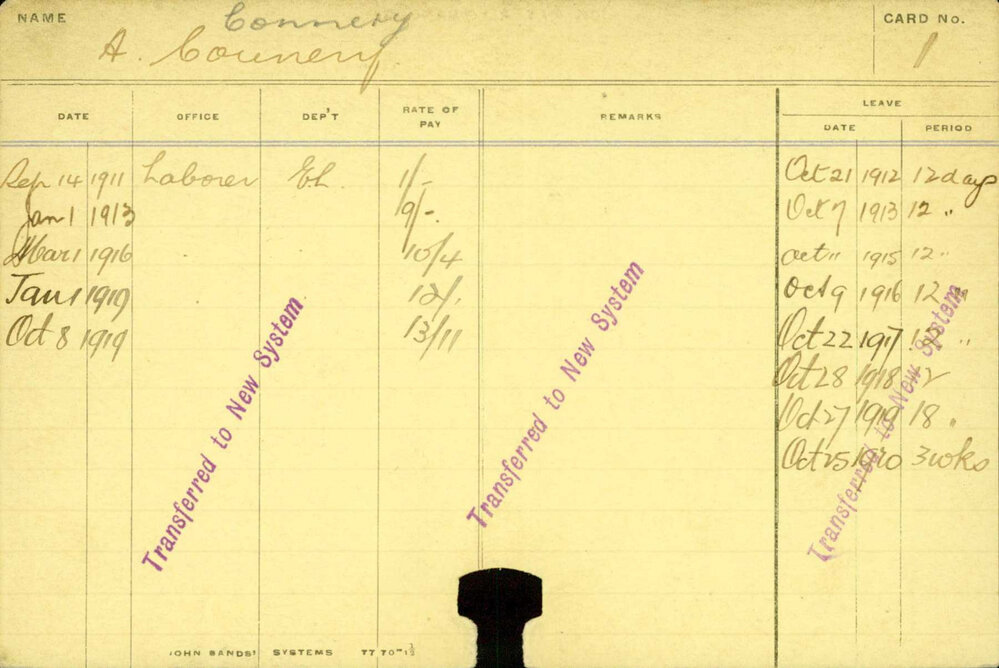 NAME Connery CARD No.
A. Connery 1
DATE OFFICE DEP'T RATE OF PAY REMARKS LEAVE
DATE PERIOD
Sep 14 1911 Laborer EL. 1/- Oct 21 1912 12 days
Jan 1 1913 9/-. Oct 7 1913 12 "
Mar 1 1916 10/4 Oct 11 1915 12 "
Jan 1 1919 12/. Oct 9 1916 12 "
Oct 8 1919 13/11 Oct 22 1917 12 "
Oct 28 1918 12
Oct 27 1919 18 "
Oct 25 1920 3 wks
Transferred to New System
Transferred to New System
Transferred to New System
JOHN SANDS' SYSTEMS 77 70